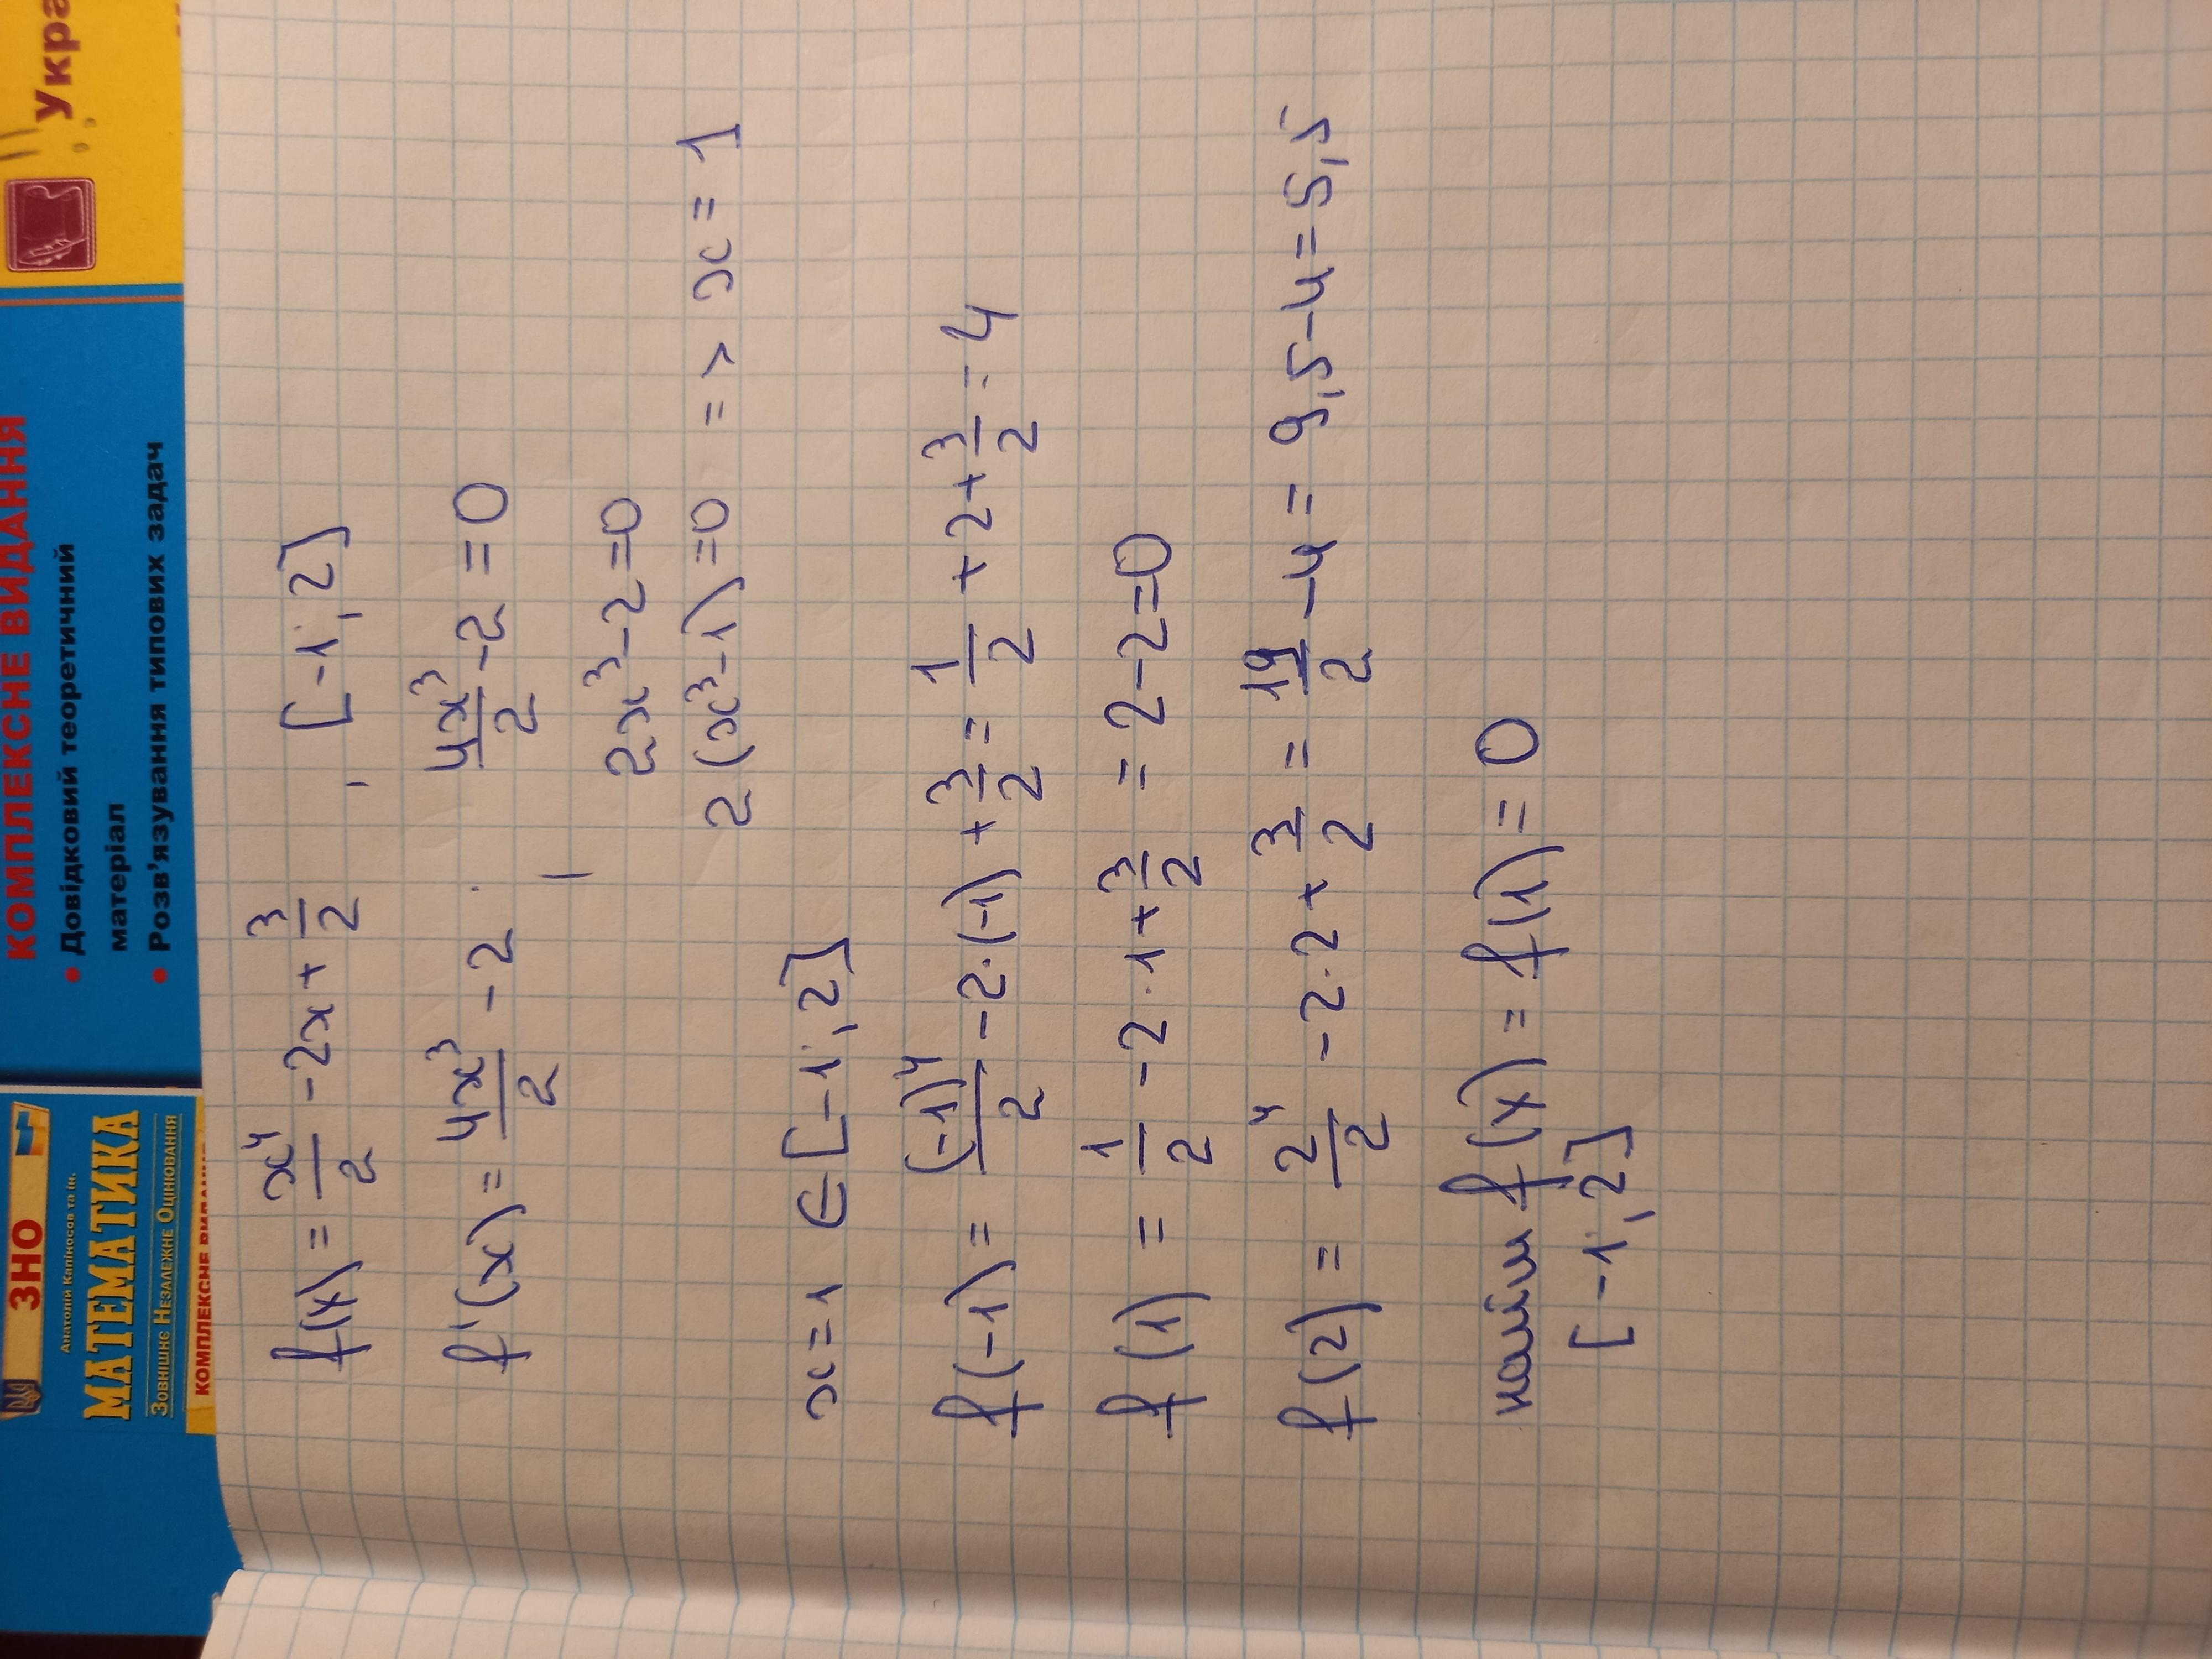 ЗНО
Анатолій Капіносов та ін.
МАТЕМАТИКА
Зовнішнє Незалежне Оцінювання
КОМПЛЕКСНЕ ВИДАННЯ
КОМПЛЕКСНЕ ВИДАННЯ
• Довідковий теоретичний
матеріал
• Розв'язування типових задач
Укра
f(x) = x⁴/2 - 2x + 3/2 , [-1; 2]
f'(x) = 4x³/2 - 2 . 4x³/2 - 2 = 0
2x³ - 2 = 0
2(x³ - 1) = 0 => x = 1
x = 1 ∈ [-1; 2]
f(-1) = (-1)⁴/2 - 2·(-1) + 3/2 = 1/2 + 2 + 3/2 = 4
f(1) = 1/2 - 2·1 + 3/2 = 2 - 2 = 0
f(2) = 2⁴/2 - 2·2 + 3/2 = 19/2 - 4 = 9,5 - 4 = 5,5
найм f(x) = f(1) = 0
[-1; 2]